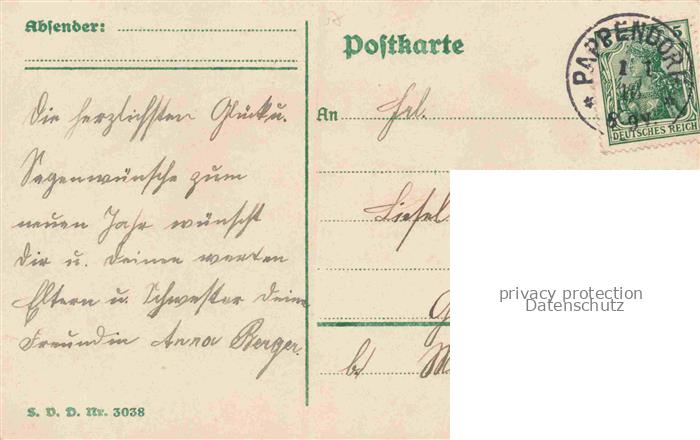 Absender:
Postkarte
5
PAPPENDORF
1 1
8-9V.
DEUTSCHES REICH
An Frl.
Liesel
G
b/ M
Die herzlichsten Glück u.
Segenwünsche zum
neuen Jahr wünscht
Dir u. Deinen werten
Eltern u. Schwester Deine
Freundin Anna Berger.
S. V. D. Nr. 3038
privacy protection
Datenschutz